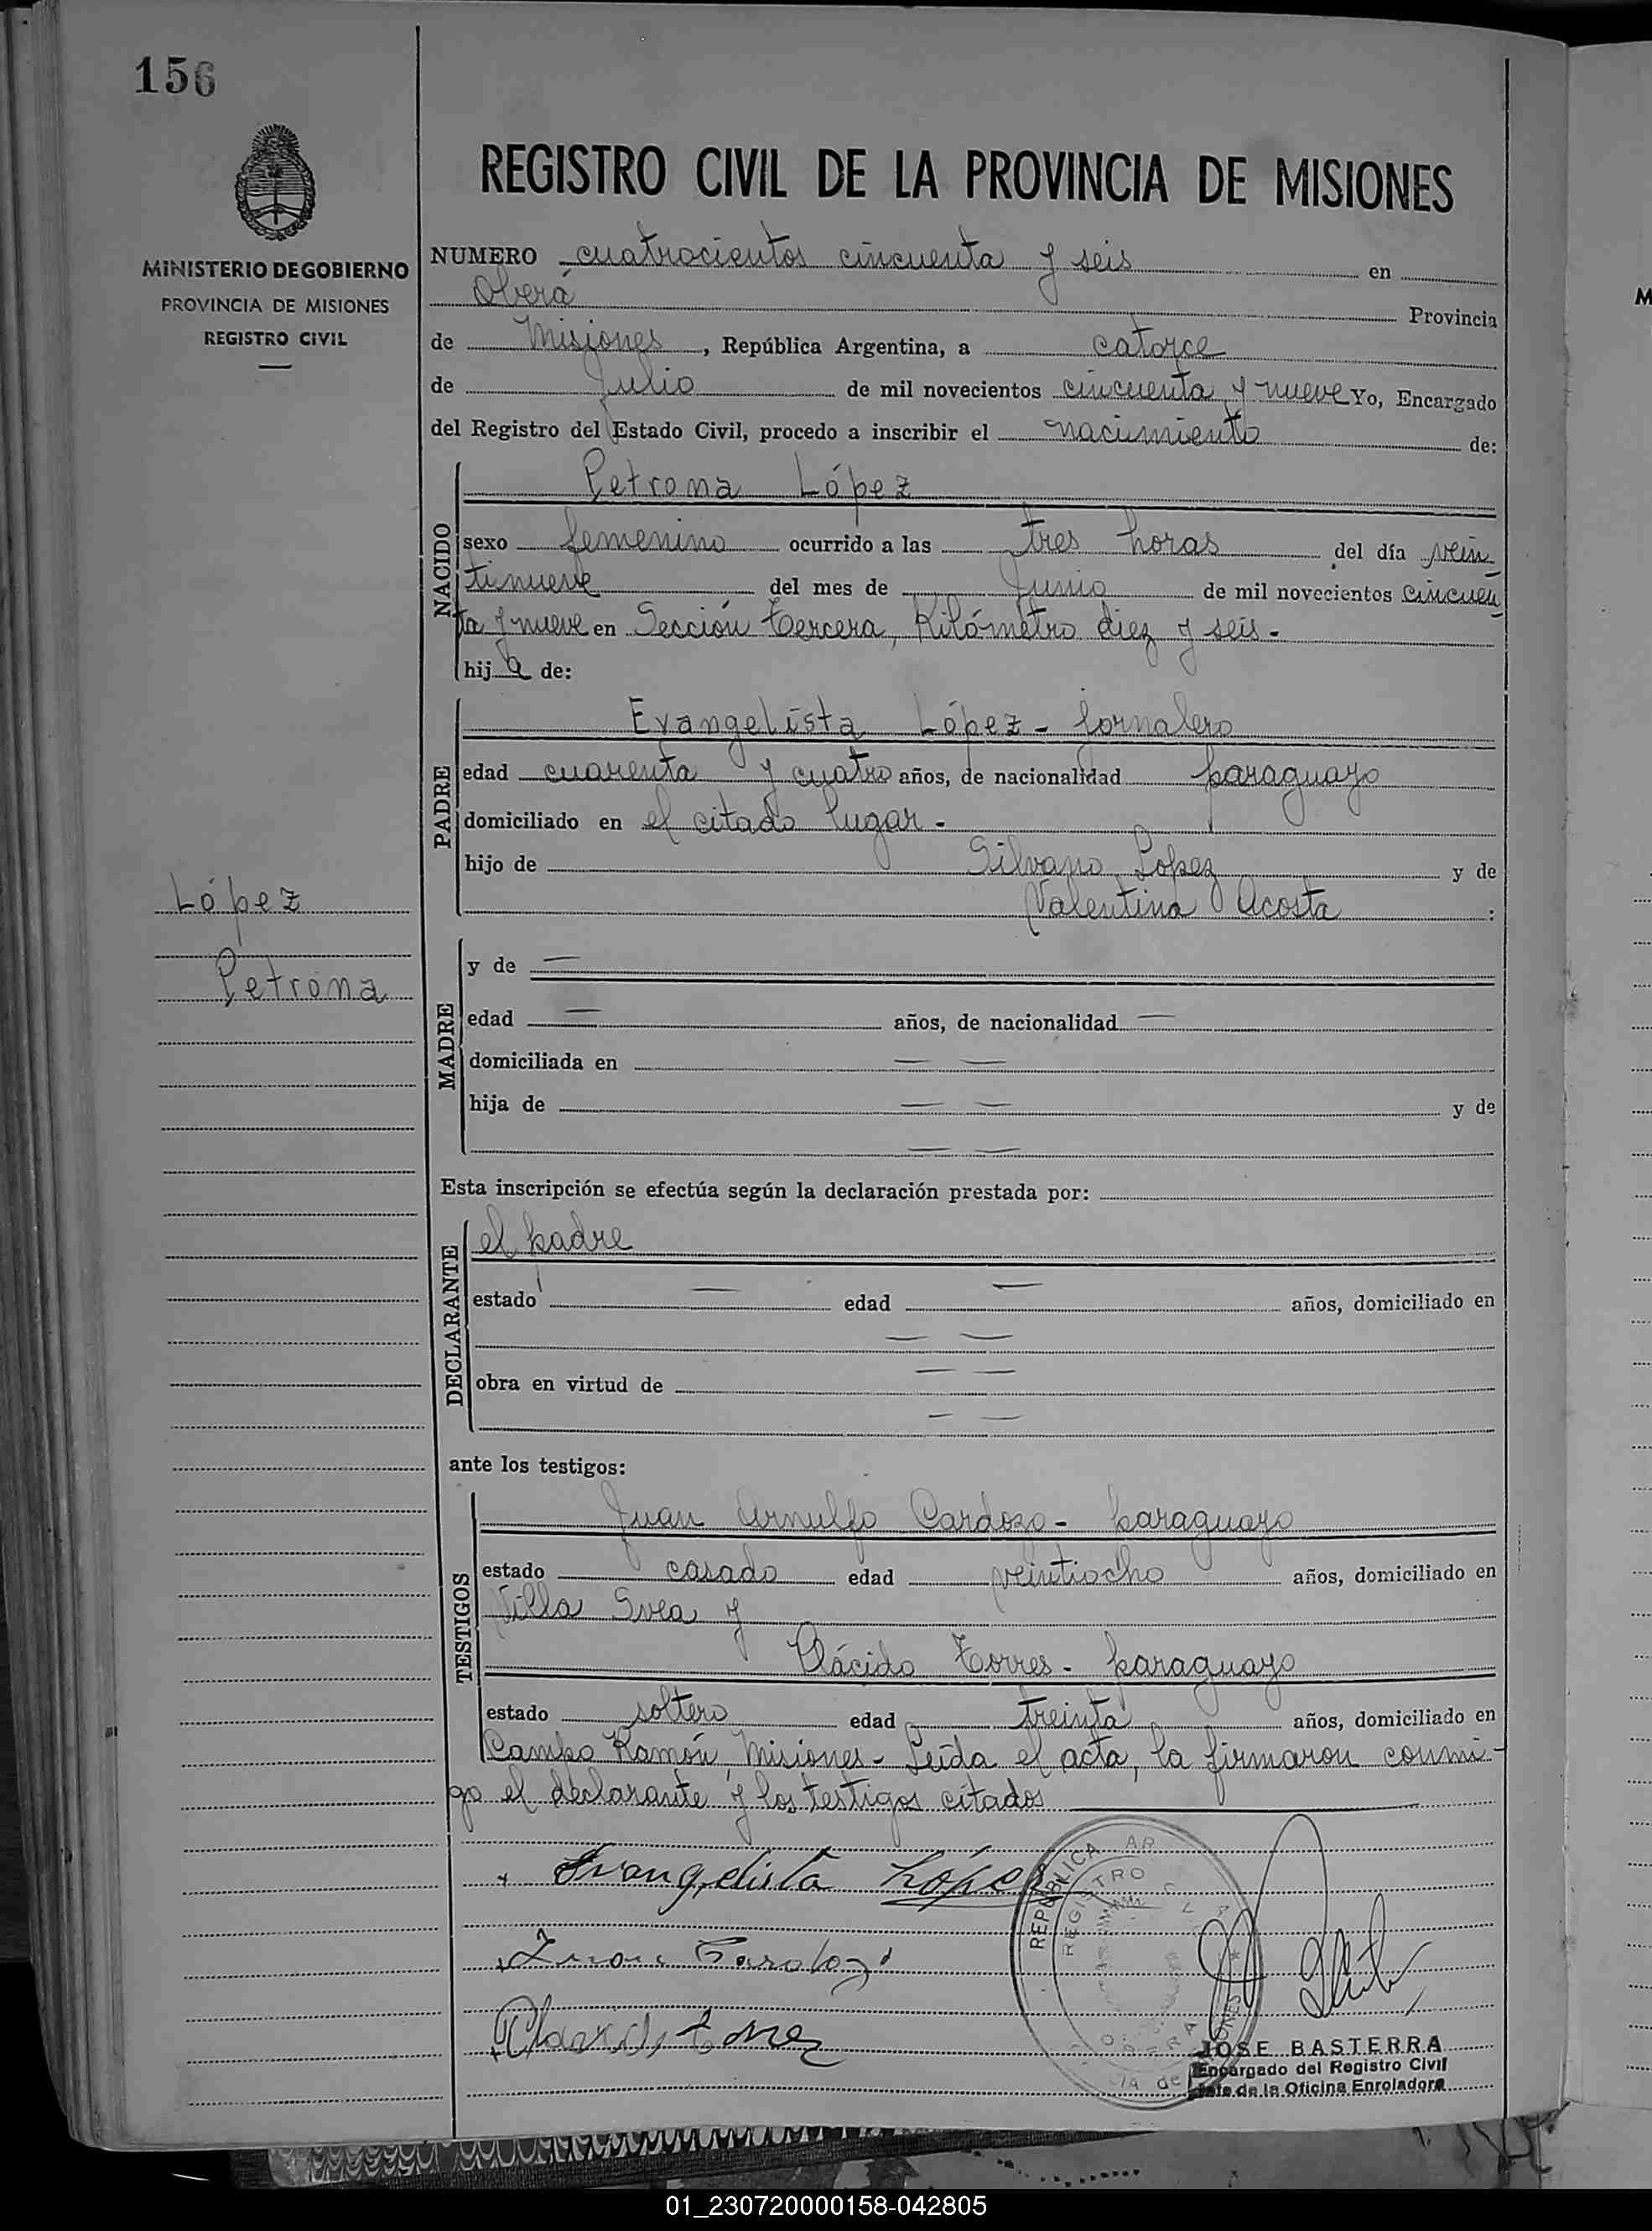 156
REGISTRO CIVIL DE LA PROVINCIA DE MISIONES
MINISTERIO DE GOBIERNO
PROVINCIA DE MISIONES
REGISTRO CIVIL
NUMERO cuatrocientos cincuenta y seis en
Oberá Provincia
de Misiones, República Argentina, a catorce
de Julio de mil novecientos cincuenta y nueve Yo, Encargado
del Registro del Estado Civil, procedo a inscribir el nacimiento de:
NACIDO
Petrona López
sexo femenino ocurrido a las tres horas del día vein
tinueve del mes de Junio de mil novecientos cincuen
ta y nueve en Sección Tercera, Kilómetro diez y seis.-
hija de:
PADRE
Evangelista López - Jornalero
edad cuarenta y cuatro años, de nacionalidad paraguayo
domiciliado en el citado lugar.-
hijo de Silvano López y de
Valentina Acosta :
López
Petrona
MADRE
y de —
edad — años, de nacionalidad —
domiciliada en — —
hija de — — y de
— —
Esta inscripción se efectúa según la declaración prestada por:
DECLARANTE
el padre
estado — edad — años, domiciliado en
— —
obra en virtud de — —
— —
ante los testigos:
TESTIGOS
Juan Arnulfo Cardozo - paraguayo
estado casado edad veintiocho años, domiciliado en
Villa Svea y
Plácido Torres - paraguayo
estado soltero edad treinta años, domiciliado en
Campo Ramón, Misiones - Leída el acta, la firmaron conmi-
go el declarante y los testigos citados
Evangelista López
REPUBLICA AR
REGISTRO
OBERA
JOSE BASTERRA
Encargado del Registro Civil
Jefe de la Oficina Enroladora
01_230720000158-042805